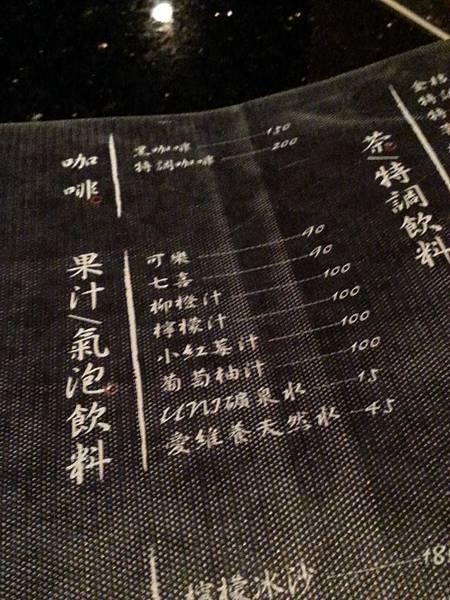 咖啡
黑咖啡 150
特調咖啡 200
果汁/氣泡飲料
可樂 90
七喜 90
柳橙汁 100
檸檬汁 100
小紅莓汁 100
葡萄柚汁 100
UNI礦泉水 15
愛維養天然水 45
檸檬冰沙 18
茶/特調飲料